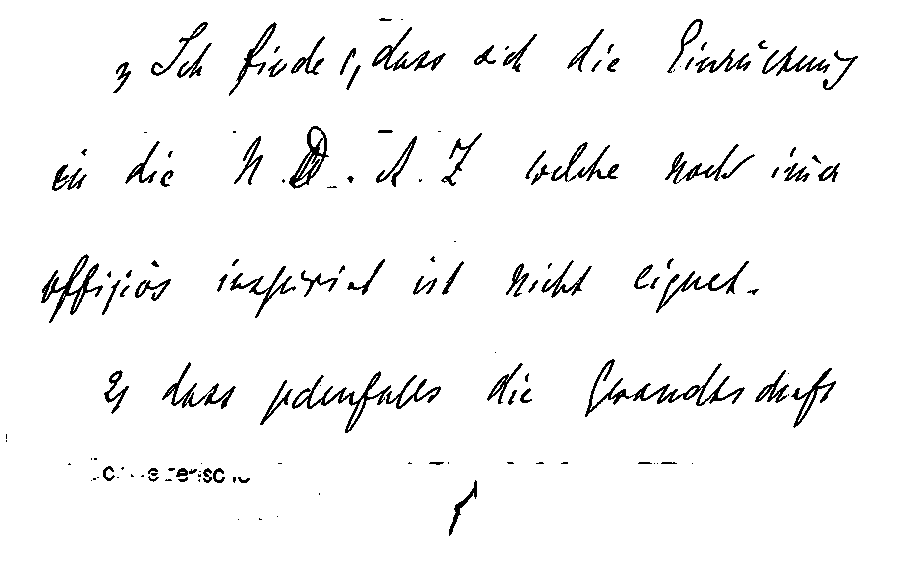 1) Ich finde, dass sich die Einrückung
in die N.D.A.Z welche noch immer
offiziös inspiriert ist nicht eignet.
2) dass jedenfalls die Gesandtschaft